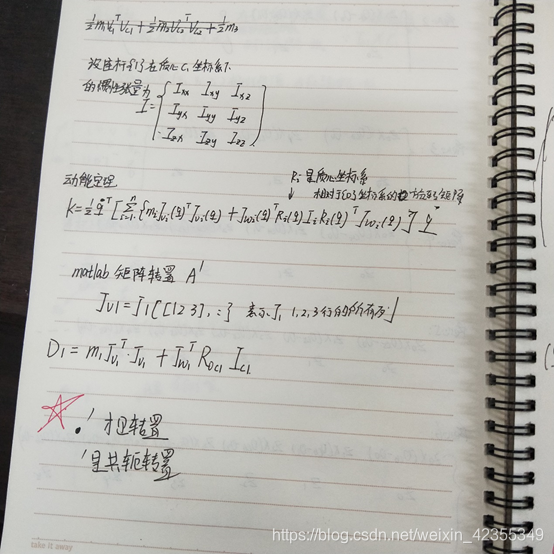 ½m₁V₁ᵀV_C1 + ½m₂V_C2ᵀV_C2 + ½m₃
设连杆i在质心Cᵢ坐标系下
的惯性张量为
I = { Ixx Ixy Ixz
Iyx Iyy Iyz
Izx Izy Izz }
动能定理
Rᵢ是质心坐标系
相对于{0}坐标系的
K=½q̇ᵀ[∑ᵢ₌₁ⁿ{mᵢJvᵢ(q)ᵀJvᵢ(q) + Jwᵢ(q)ᵀRᵢ(q)IᵢRᵢ(q)ᵀJwᵢ(q)}]q̇
matlab 矩阵转置 A'
Jv1 = J1([1 2 3], :) 表示J1 1,2,3行的所有列
D1 = m1Jv1ᵀ·Jv1 + Jw1ᵀR0c1 Ic1
.' 才是转置
'是共轭转置
take it away
https://blog.csdn.net/weixin_42355349